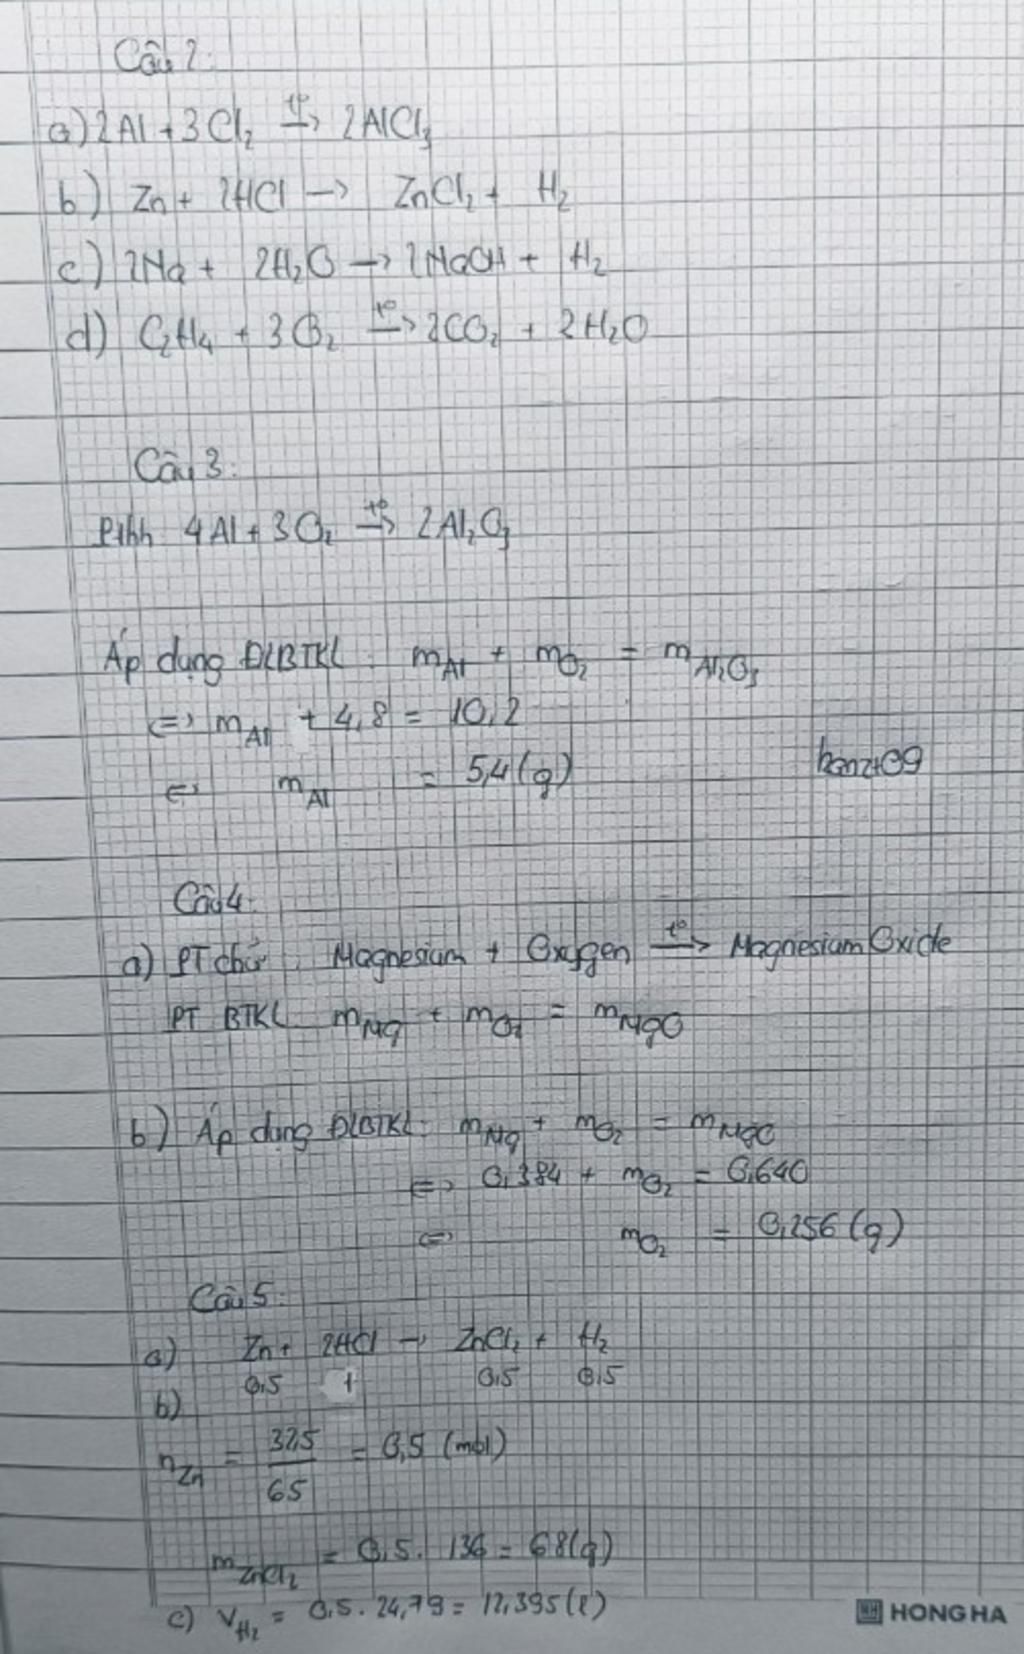 Câu 2:
a) 2Al + 3Cl₂ -t°-> 2AlCl₃
b) Zn + 2HCl -> ZnCl₂ + H₂
c) 2Na + 2H₂O -> 2NaOH + H₂
d) C₂H₄ + 3O₂ -t°-> 2CO₂ + 2H₂O
Câu 3:
Pthh 4Al + 3O₂ -t°-> 2Al₂O₃
Áp dụng ĐLBTKL: m_Al + m_O₂ = m_Al₂O₃
<=> m_Al + 4,8 = 10,2
<=> m_Al = 5,4 (g)
Câu 4:
a) PT chữ: Magnesium + Oxygen -t°-> Magnesium Oxide
PT BTKL m_Mg + m_O₂ = m_MgO
b) Áp dụng ĐLBTKL: m_Mg + m_O₂ = m_MgO
<=> 0,384 + m_O₂ = 0,640
<=> m_O₂ = 0,256 (g)
Câu 5:
a) Zn + 2HCl -> ZnCl₂ + H₂
0,5 1 0,5 0,5
b)
n_Zn = 32,5/65 = 0,5 (mol)
m_ZnCl₂ = 0,5 . 136 = 68 (g)
c) V_H₂ = 0,5 . 24,79 = 12,395 (l)
HONG HA